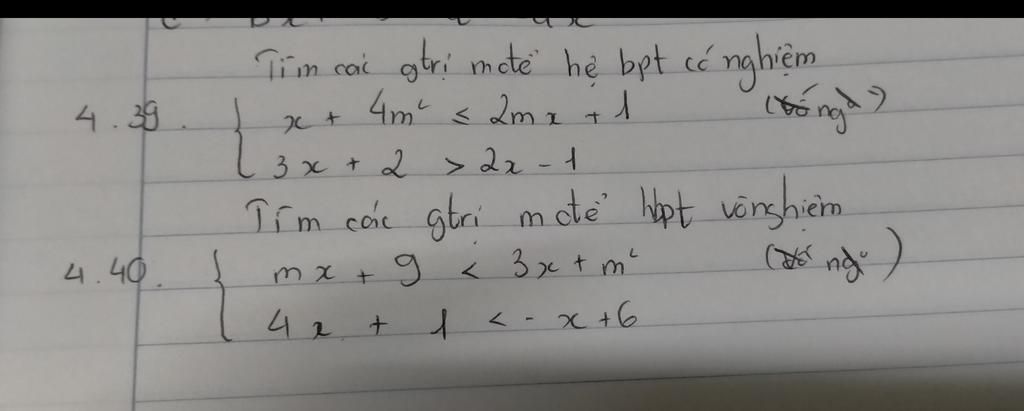 Tìm các gtrị m để hệ bpt có nghiệm
4.39. { x + 4m² ≤ 2mx + 1
3x + 2 > 2x - 1
Tìm các gtrị m để hbpt vô nghiệm
4.40. { mx + 9 < 3x + m²
4x + 1 < - x + 6